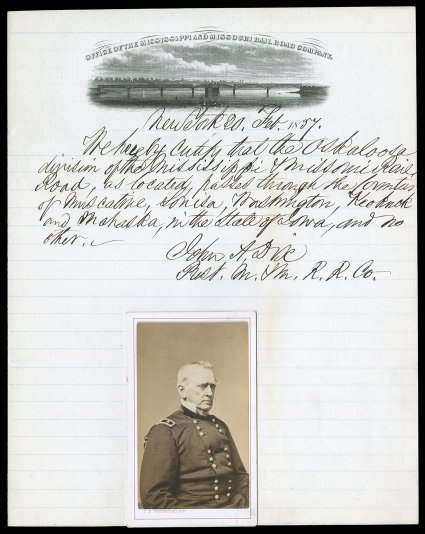 OFFICE OF THE MISSISSIPPI AND MISSOURI RAIL ROAD COMPANY.
New York 20. Feb. 1857.
We hereby certify that the Oskaloosa
division of the Mississippi & Missouri Rail
Road, as located, passes through the Counties
of Muscatine, Louisa, Washington, Keokuck
and Mahaska, in the State of Iowa, and no
other.
John A. Dix
Prest. M. & M. R. R. Co.